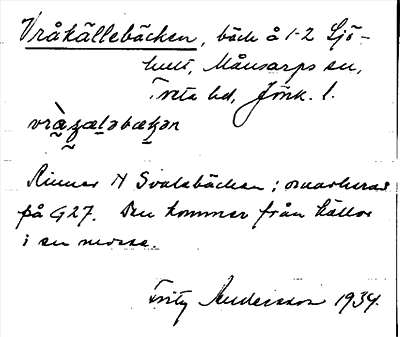 Vråkällebäcken, bäck å 1-2 Sjö-
hult, Månsarps sn,
Tveta hd, Jönk. l.
vrà̰ʒælabækən
Rinner N Svalabäcken; omarkerad
på G27. Den kommer från källor
i en mosse.
Fritz Andersson 1934.